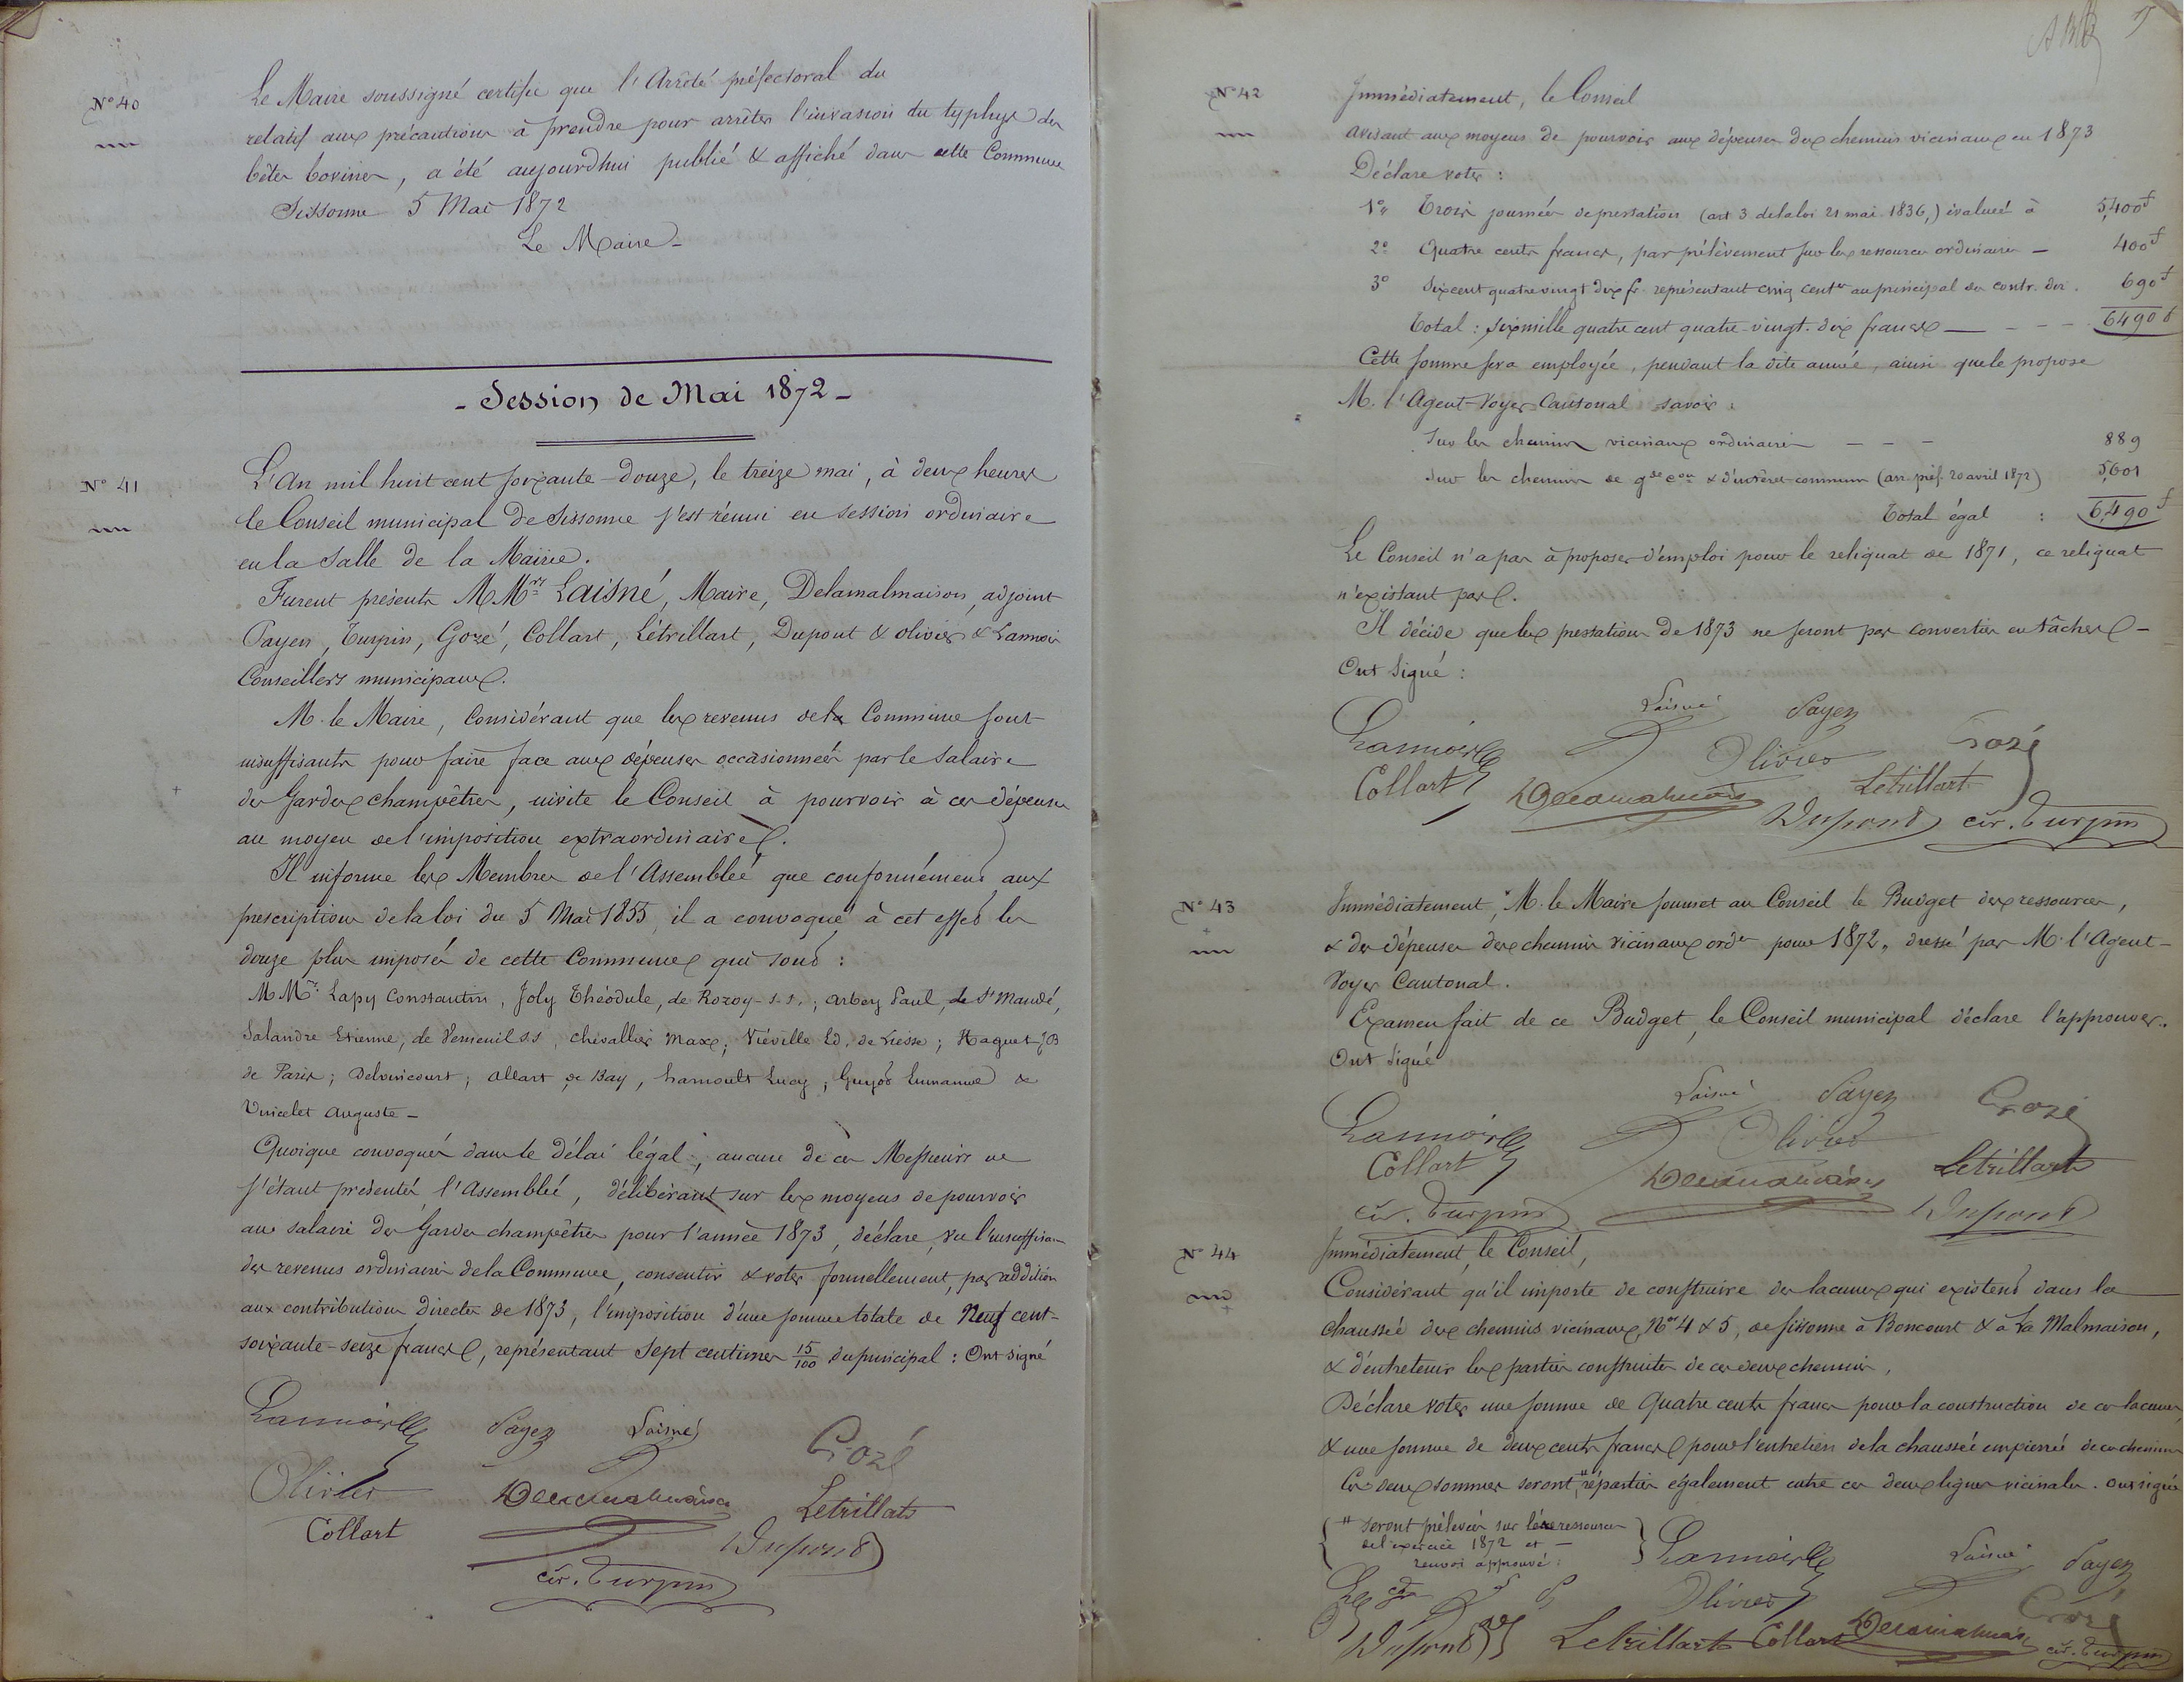 N° 40
Le Maire soussigné certifie que l'Arrêté préfectoral du
relatif aux précautions à prendre pour arrêter l'invasion du typhus des
bêtes bovines, a été aujourd'hui publié & affiché dans cette Commune
Sissonne 5 Mai 1872
Le Maire -
- Session de Mai 1872 -
N° 41
L'An mil huit cent soixante-douze, le treize mai, à deux heures
le Conseil municipal de Sissonne s'est réuni en session ordinaire
en la Salle de la Mairie.
Furent présents MMrs Laisné, Maire, Delamalmaison, adjoint
Payen, Turpin, Gozé, Collart, Létrillart, Dupont & Olivier & Lannois
Conseillers municipaux.
M. le Maire, Considérant que les revenus de la Commune sont
insuffisants pour faire face aux dépenses occasionnées par le salaire
des Gardes champêtres, invite le Conseil à pourvoir à ces dépenses
au moyen de l'imposition extraordinaire.
Il informe les Membres de l'Assemblée que conformément aux
prescriptions de la loi du 5 Mai 1855, il a convoqué à cet effet les
douze plus imposés de cette Commune qui sont :
MMrs Lapy Constantin, Joly Théodule, de Rozoy-s.s.; Arbey Paul, de St Mandé,
Salandre Etienne, de Verneuil s.s, Chevallier Max; Viéville Ed. de Liesse; Haquet JB
de Paris; Delvincourt; Allart de Bay, Lucq; Guyot Emmanuel &
Auguste -
Quoique convoqués dans le délai légal, aucun de ces Messieurs ne
s'étant présenté, l'Assemblée, délibérant sur les moyens de pourvoir
au salaire des Gardes champêtres pour l'année 1873, déclare, vu l'insuffisance
des revenus ordinaires de la Commune, consentir & voter formellement, par addition
aux contributions directes de 1873, l'imposition d'une somme totale de Neuf cent-
soixante-seize francs, représentant Sept centimes 15/100 du principal : Ont signé
Lannois Payen Laisné Gozé
Olivier Delamalmaison Letrillart
Collart Dupont
cir. Turpin
N° 42
Immédiatement, le Conseil
avisant aux moyens de pourvoir aux dépenses des chemins vicinaux en 1873
Déclare voter :
1° Trois journées de prestation (art 3 de la loi 21 mai 1836,) évaluées à 5,400f
2° Quatre cents francs, par prélèvement sur les ressources ordinaires - 400f
3° Six cent quatre vingt dix fr. représentant cinq centes au principal des contr. dir. 690f
Total : Six mille quatre cent quatre-vingt-dix francs - - - - 6490f
Cette somme sera employée, pendant la dite année, ainsi que le propose
M. l'Agent-Voyer Cantonal savoir :
Sur les chemins vicinaux ordinaires - - - 889
Sur les chemins de gde con & d'intérêt commun (arr. préf. 20 avril 1872) 5,601
Total égal : 6,490f
Le Conseil n'a pas à proposer d'emploi pour le reliquat de 1871, ce reliquat
n'existant pas.
Il décide que les prestations de 1873 ne seront pas converties en tâches -
Ont Signé :
Laisné Payen
Lannois Olivier Gozé
Collart Delamalmaison Letrillart
Dupont cir. Turpin
N° 43
Immédiatement, M. le Maire soumet au Conseil le Budget des ressources,
& des dépenses des chemins vicinaux ordes pour 1872, dressé par M. l'Agent-
Voyer Cantonal.
Examen fait de ce Budget, le Conseil municipal déclare l'approuver.
Ont signé
Laisné Payen Gozé
Lannois Olivier
Collart Delamalmaison Letrillart
cir. Turpin Dupont
N° 44
Immédiatement, le Conseil,
Considérant qu'il importe de construire des lacunes qui existent dans la
chaussée des chemins vicinaux, Nos 4 & 5, de Sissonne à Boncourt & à La Malmaison,
& d'entretenir les parties construites de ces deux chemins,
Déclare voter une somme de Quatre cents francs pour la construction de ces lacunes
& une somme de deux cents francs pour l'entretien de la chaussée empierrée de ces chemins
Ces deux sommes seront # réparties également entre ces deux lignes vicinales. Ont signé
# seront prélevées sur les ressources
de l'exercice 1872 et -
renvoi approuvé :
Lannois Laisné Payen
Olivier Gozé
Dupont Letrillart Collart Delamalmaison cir. Turpin